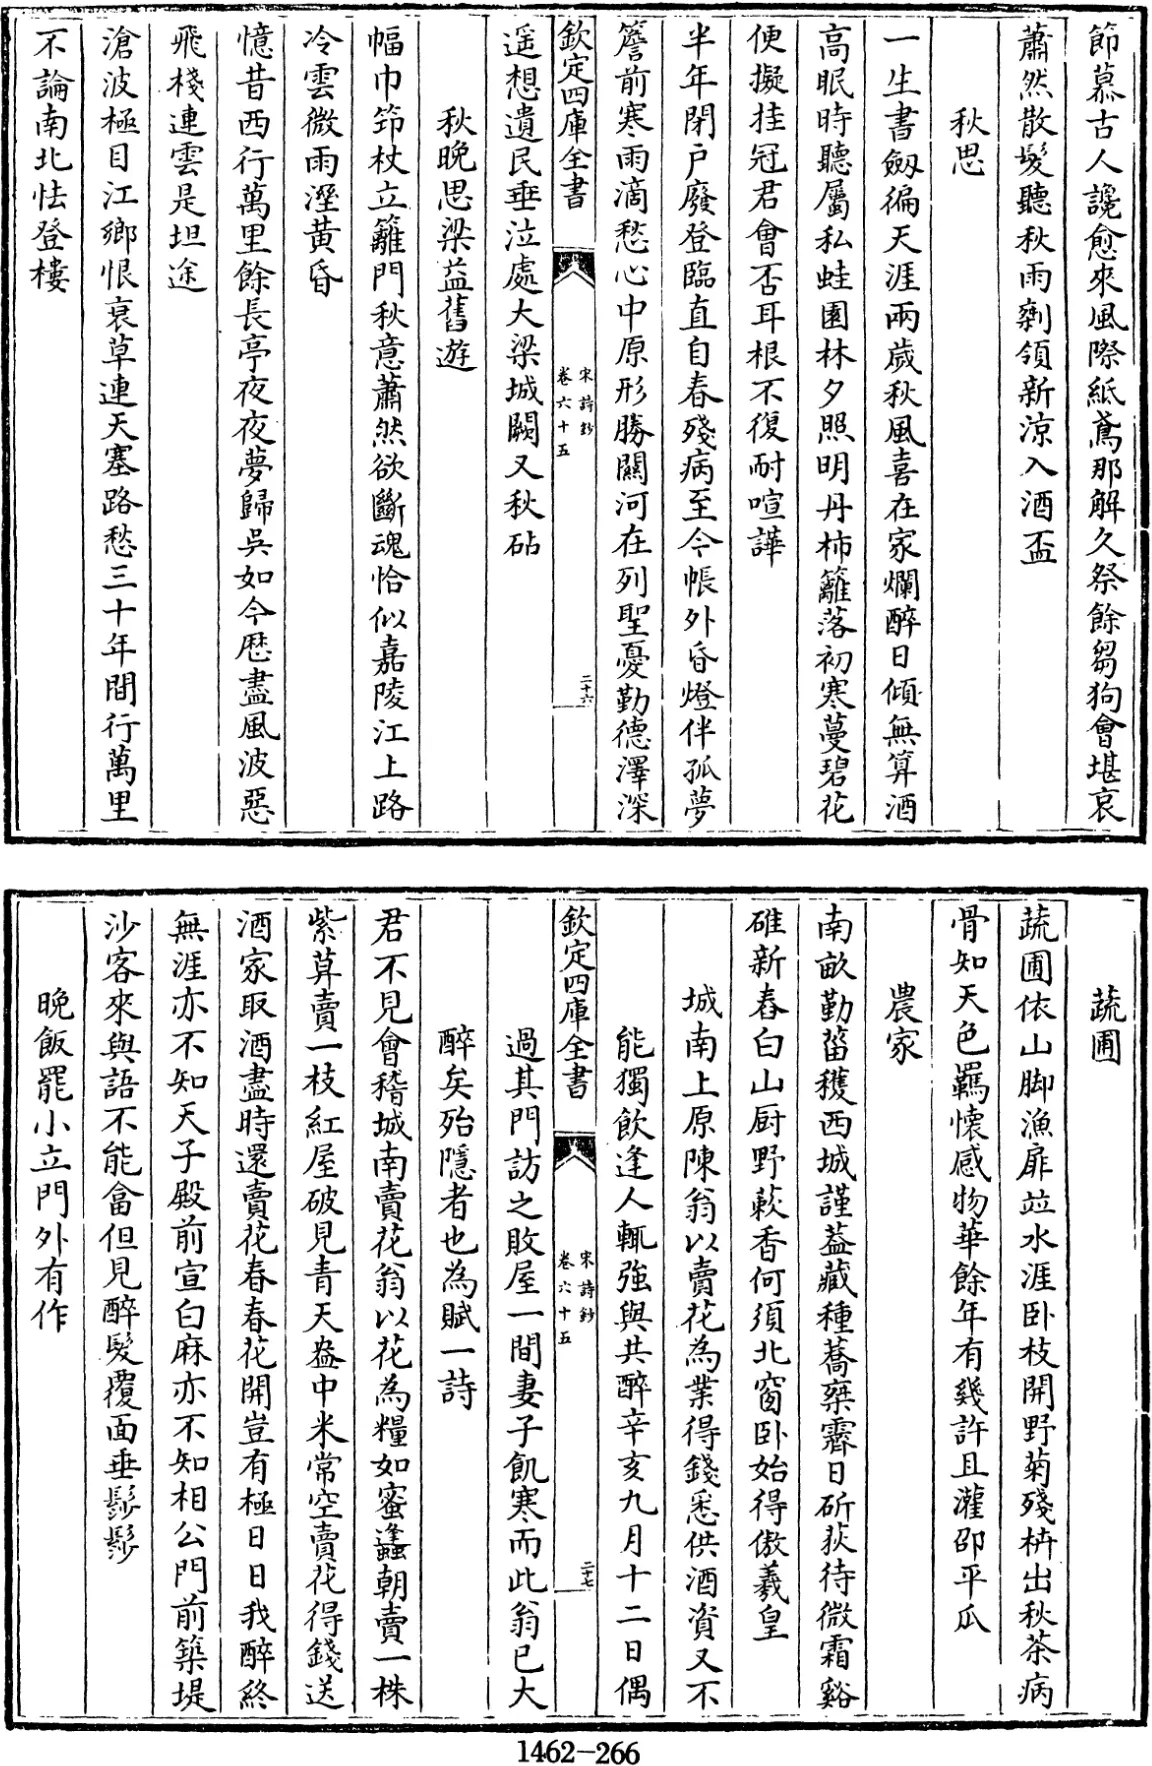 節慕古人讒愈來風際紙鳶那解久祭餘芻狗會堪哀
蕭然散髮聽秋雨剩領新涼入酒盃
秋思
一生書劔徧天涯兩歲秋風喜在家爛醉日傾無算酒
高眠時聽屬私蛙園林夕照明丹柿籬落初寒蔓碧花
便擬挂冠君會否耳根不復耐喧譁
半年閉户廢登臨直自春殘病至今帳外昏燈伴孤夢
簷前寒雨滴愁心中原形勝關河在列聖憂勤德澤深
欽定四庫全書
宋詩鈔
卷六十五
二十六
遥想遺民垂泣處大梁城闕又秋砧
秋晚思梁益舊遊
幅巾笻杖立籬門秋意蕭然欲斷魂恰似嘉陵江上路
冷雲微雨溼黄昏
憶昔西行萬里餘長亭夜夜夢歸吳如今歷盡風波惡
飛棧連雲是坦途
滄波極目江鄉恨衰草連天塞路愁三十年間行萬里
不論南北怯登樓
蔬圃
蔬圃依山脚漁扉並水涯卧枝開野菊殘枿出秋茶病
骨知天色羈懷感物華餘年有幾許且灌邵平瓜
農家
南畝勤菑穫西城謹蓋藏種蕎乗霽日斫荻待微霜谿
碓新舂白山厨野蔌香何須北窗卧始得傲羲皇
城南上原陳翁以賣花為業得錢悉供酒資又不
能獨飲逢人輒強與共醉辛亥九月十二日偶
欽定四庫全書
宋詩鈔
卷六十五
二十七
過其門訪之敗屋一間妻子飢寒而此翁已大
醉矣殆隱者也為賦一詩
君不見會稽城南賣花翁以花為糧如蜜蠭朝賣一株
紫莫賣一枝紅屋破見青天盎中米常空賣花得錢送
酒家取酒盡時還賣花春春花開豈有極日日我醉終
無涯亦不知天子殿前宣白麻亦不知相公門前築堤
沙客來與語不能畣但見醉髮覆面垂鬖鬖
晚飯罷小立門外有作
1462-266